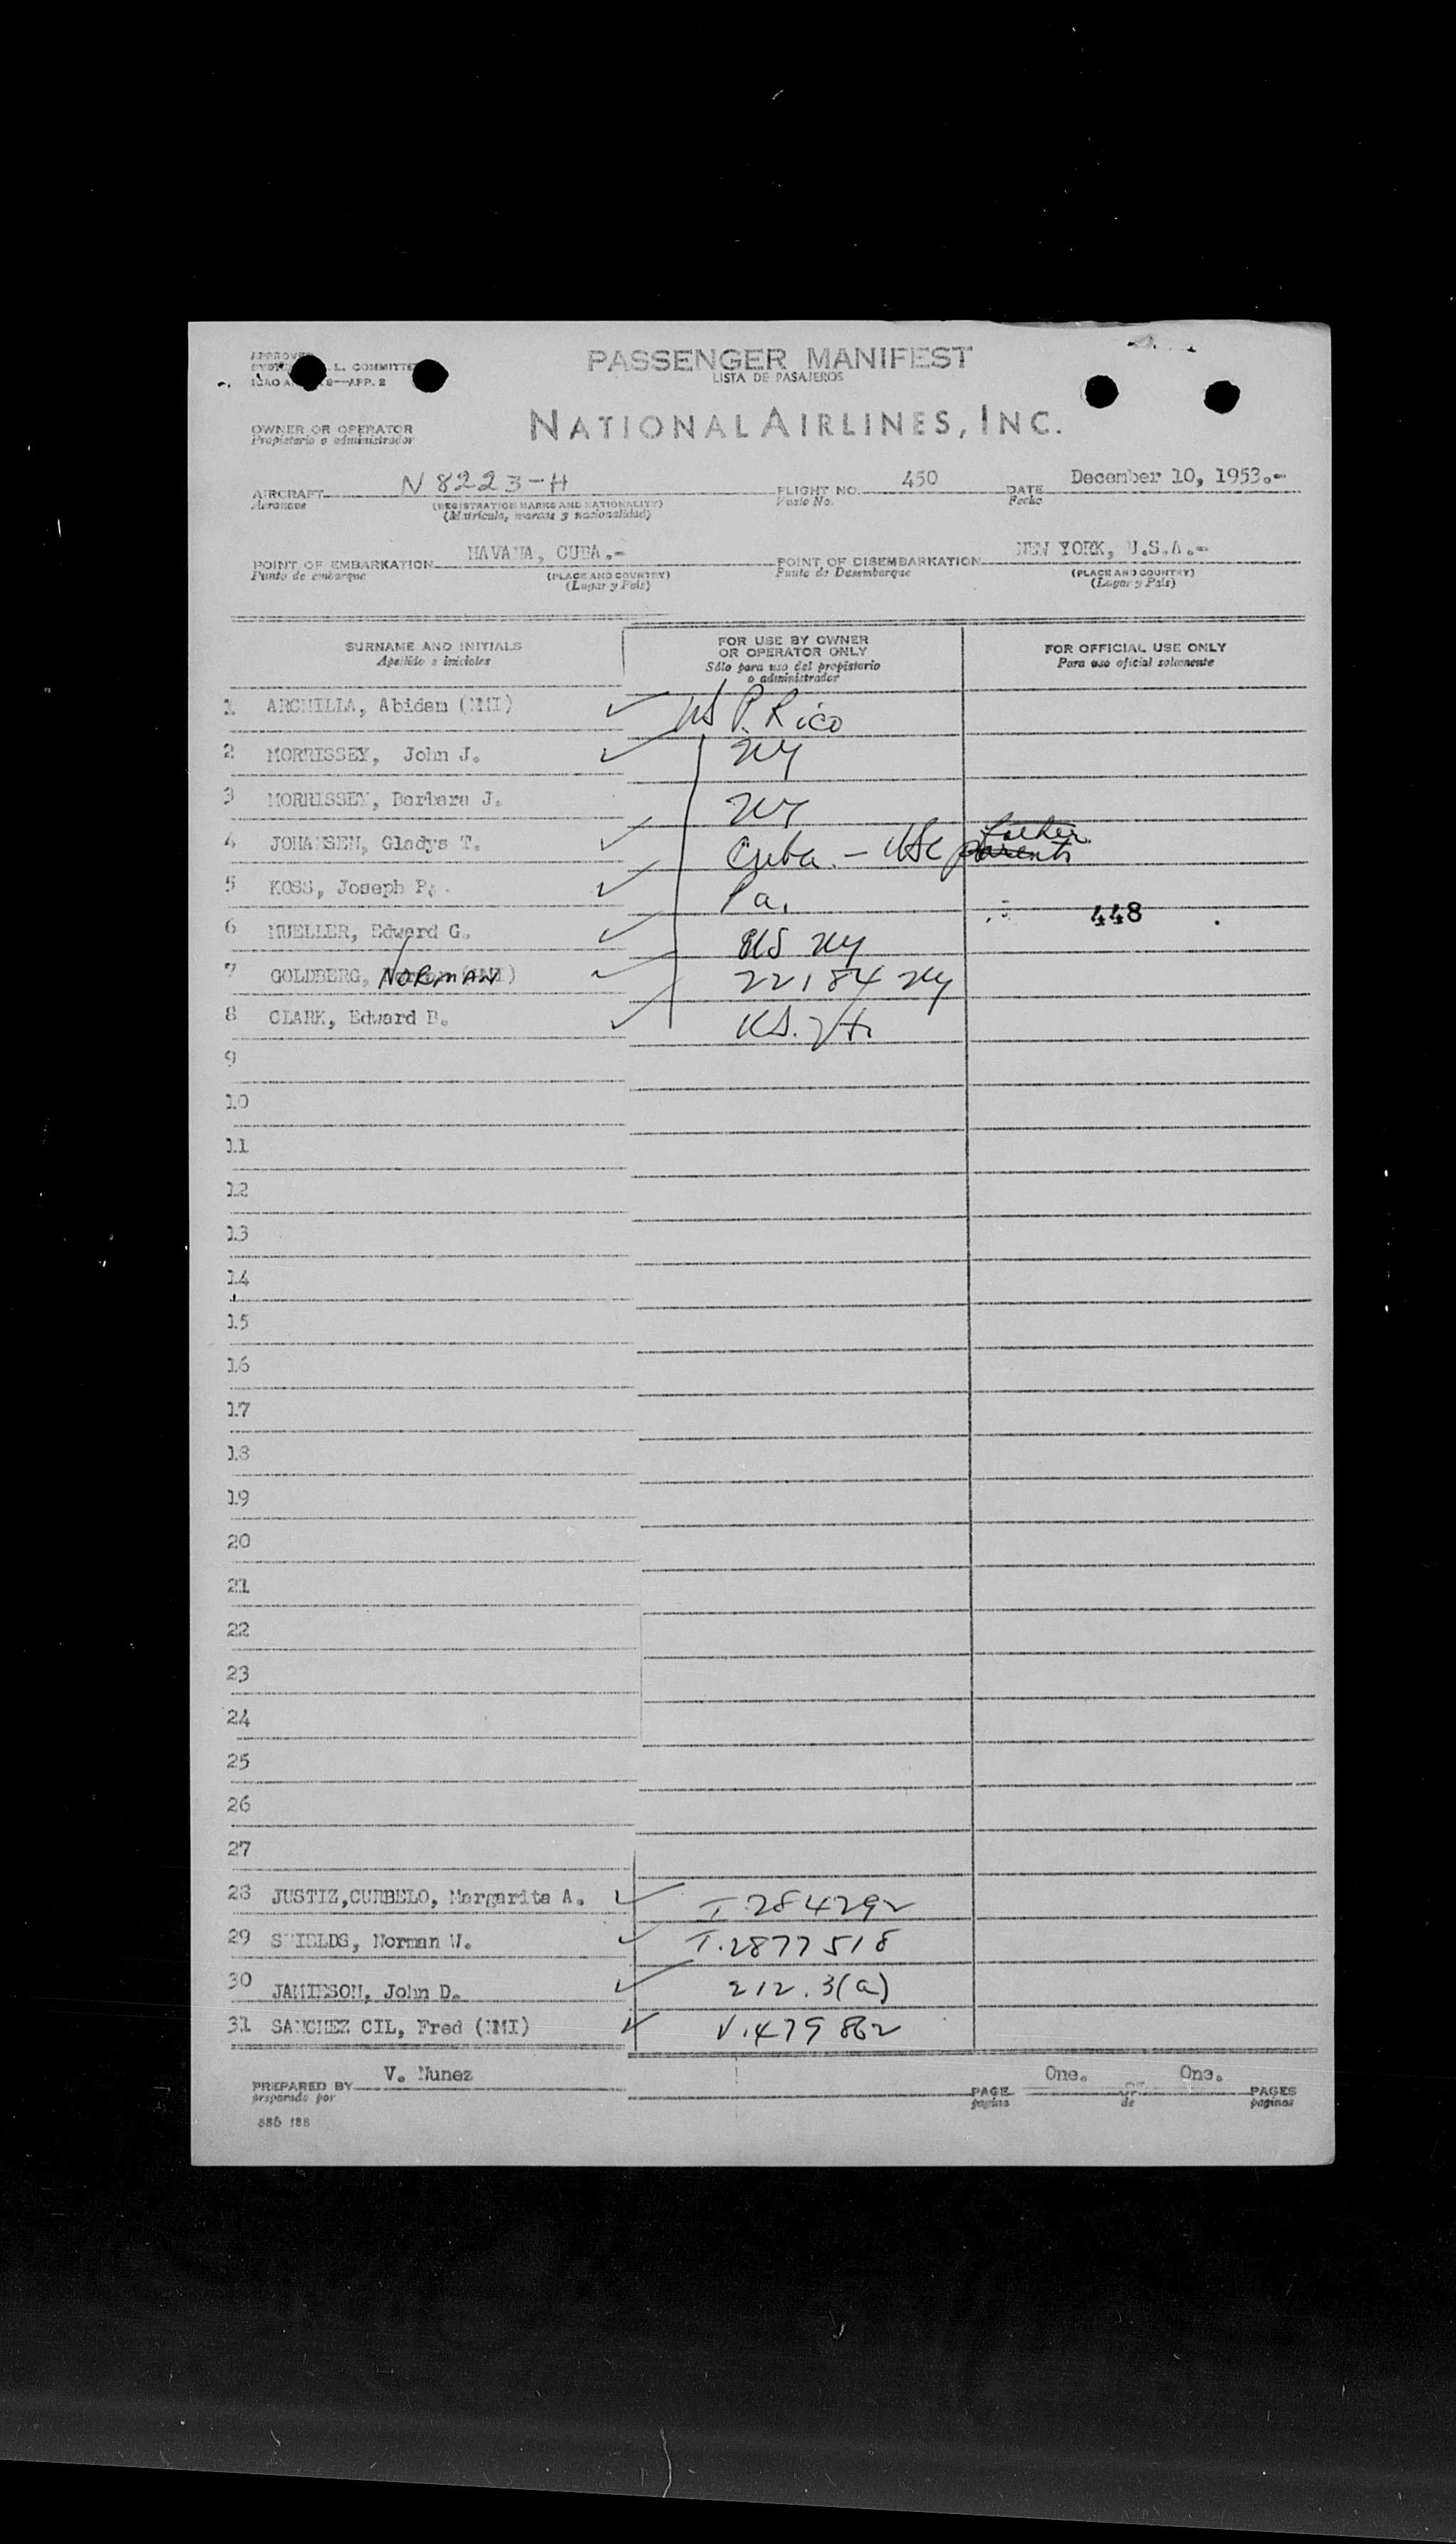 PASSENGER MANIFEST
LISTA DE PASAJEROS
APPROVED
L. COMMITTE
ICAO 9—APP. 2
NATIONAL AIRLINES, INC.
OWNER OR OPERATOR
Propietario o administrador
AIRCRAFT N 8223-H FLIGHT NO. 450 DATE December 10, 1953.-
Aeronave (REGISTRATION MARKS AND NATIONALITY) Vuelo No. Fecha
(Matrícula, marcas y nacionalidad)
POINT OF EMBARKATION HAVANA, CUBA.- POINT OF DISEMBARKATION NEW YORK, U.S.A.-
Punto de embarque (PLACE AND COUNTRY) Punto de Desembarque (PLACE AND COUNTRY)
(Lugar y País) (Lugar y País)
SURNAME AND INITIALS FOR USE BY OWNER OR OPERATOR ONLY FOR OFFICIAL USE ONLY
Apellido e iniciales Sólo para uso del propietario o administrador Para uso oficial solamente
1 ARCHILLA, Abidam (NMI) US P. Rico
2 MORRISSEY, John J. NY
3 MORRISSEY, Barbara J. NY
4 JOHANSEN, Gladys T. Cuba. - USC parents father
5 KOSS, Joseph P. Pa.
448
6 MUELLER, Edward G. US NY
7 GOLDBERG, NORMAN (NMI) 22184 NY
8 CLARK, Edward B. US.
9
10
11
12
13
14
15
16
17
18
19
20
21
22
23
24
25
26
27
28 JUSTIZ,CURBELO, Margarita A. I 284292
29 SHIELDS, Norman W. T.2877518
30 JAMIESON, John D. 212.3(a)
31 SANCHEZ CIL, Fred (NMI) V.479862
PREPARED BY V. Nunez PAGE One. OF One. PAGES
preparado por pagina de paginas